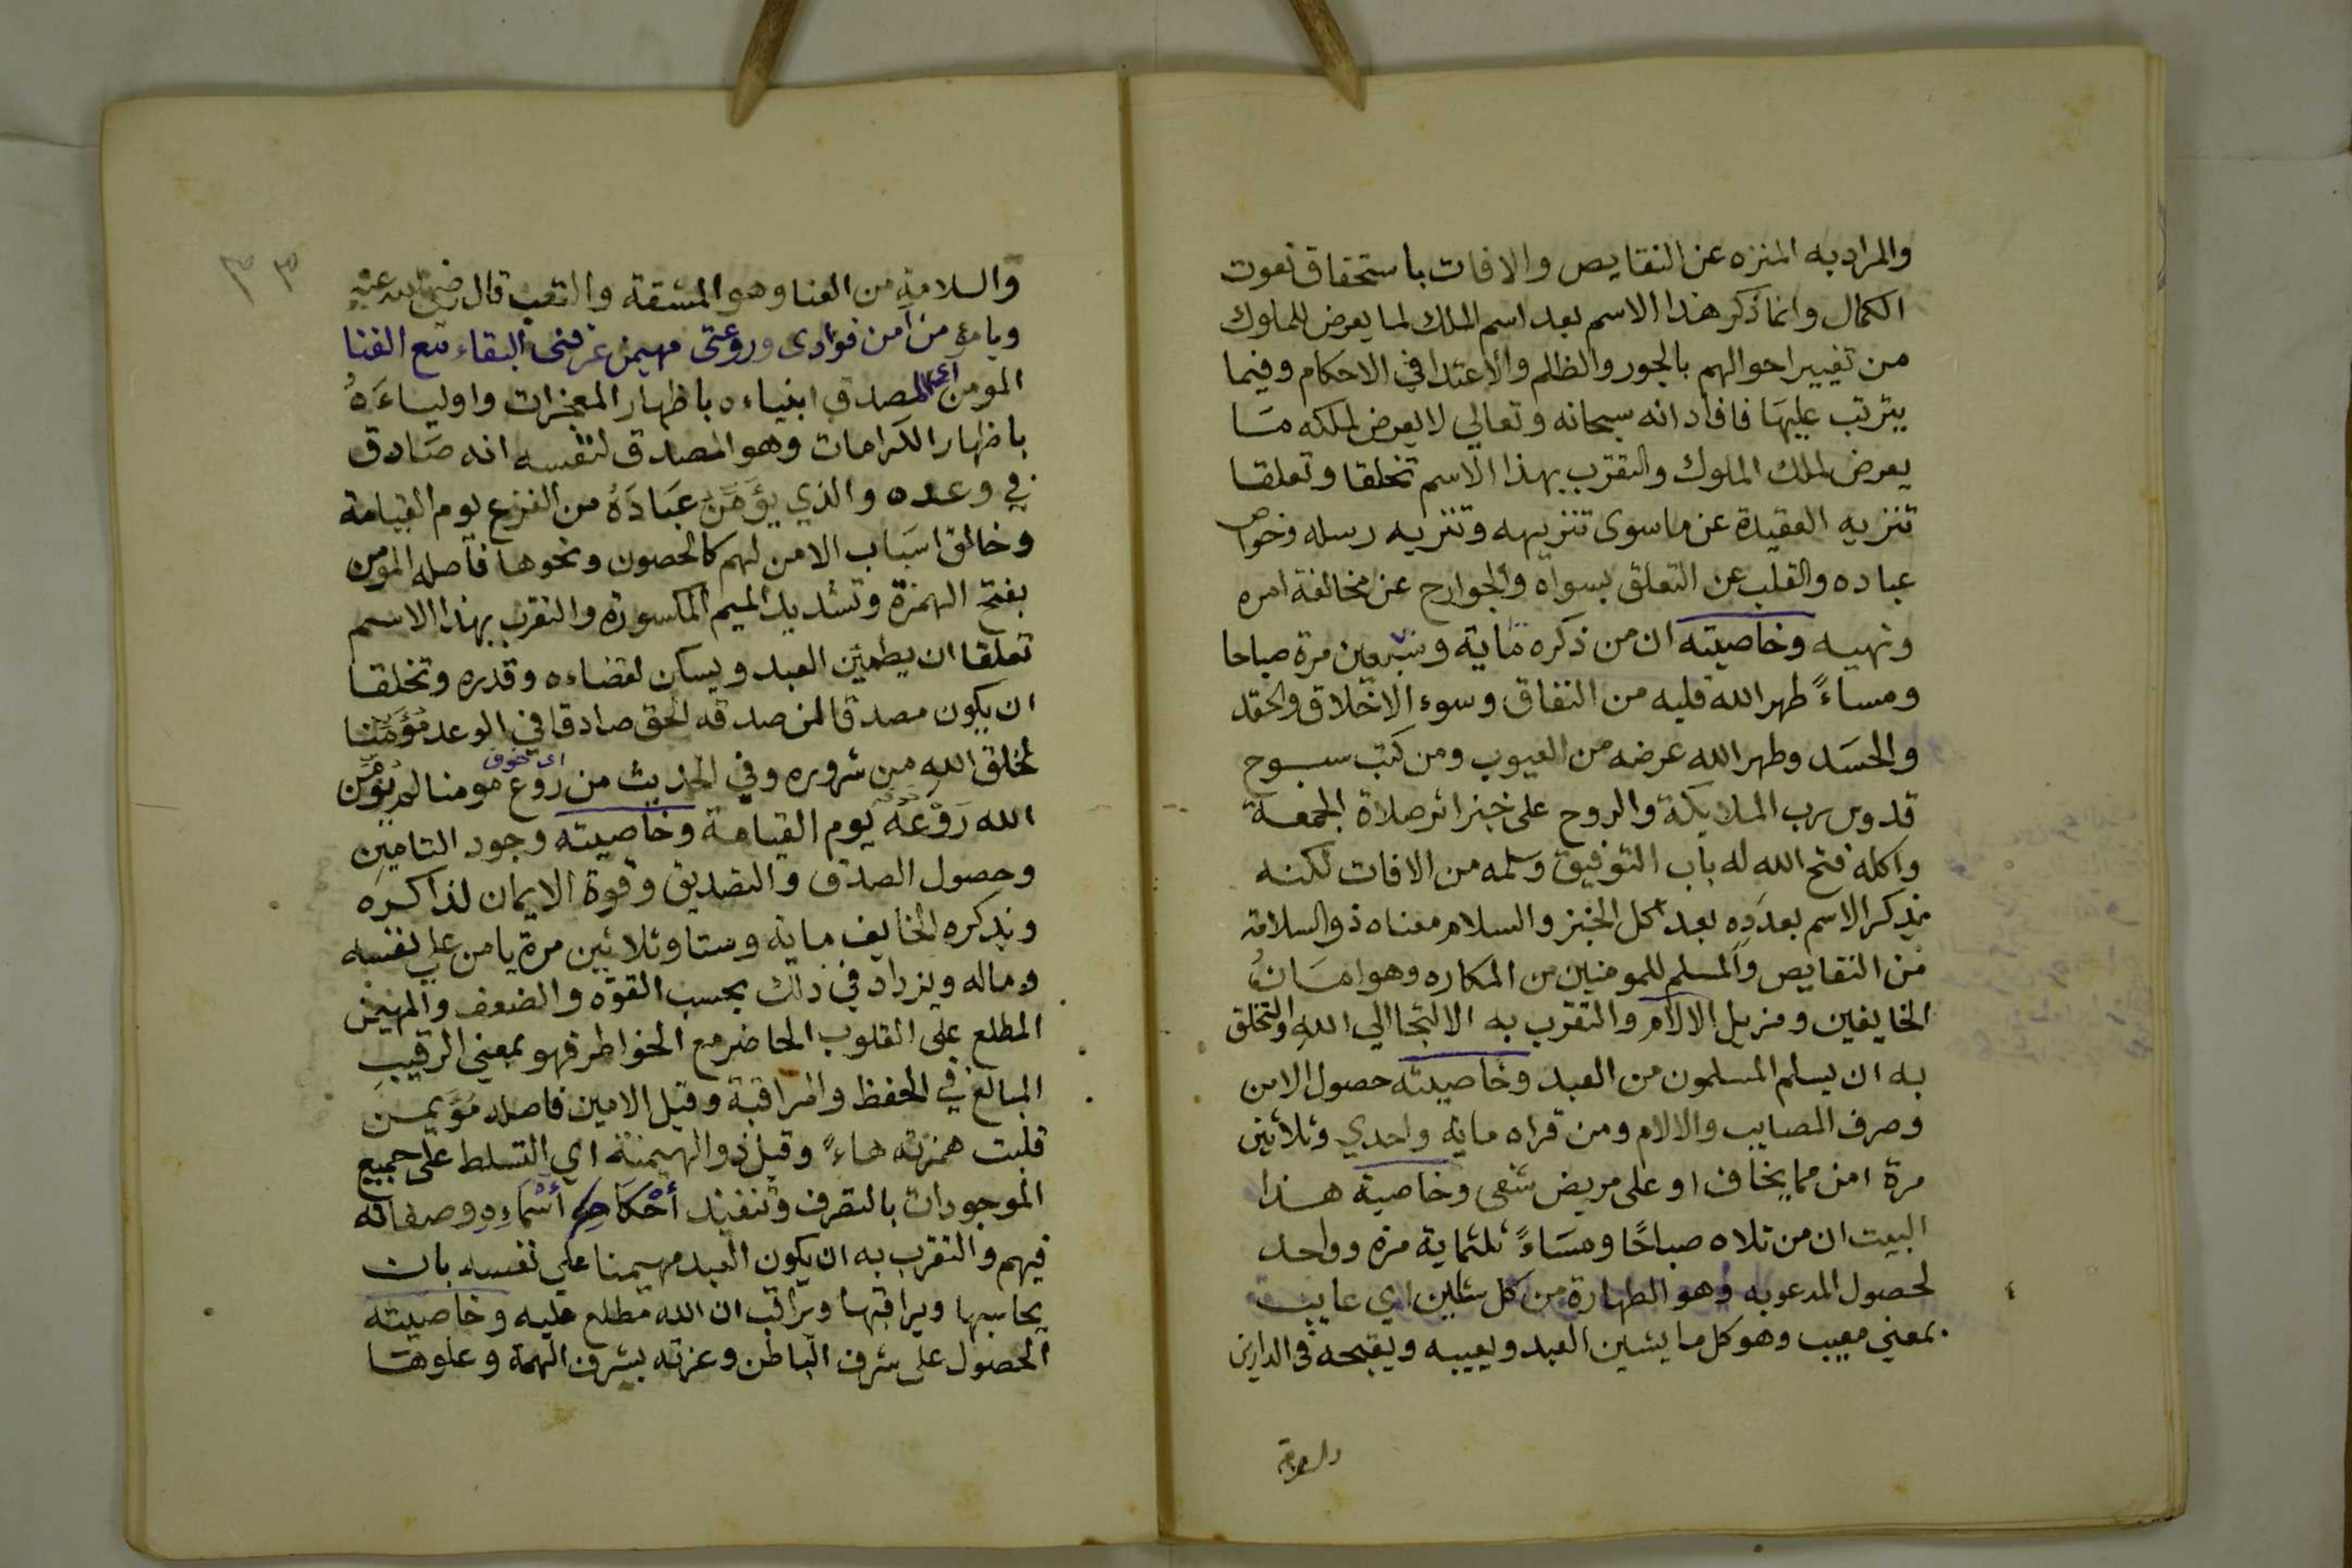 والمراد به المنزه عن النقايص والافات باستحقاق نعوت
الكمال وانما ذكر هذا الاسم بعد اسم الملك لما يعرض للملوك
من تغيير احوالهم بالجور والظلم والاعتدا في الاحكام وفيما
يترتب عليها فافاد انه سبحانه وتعالي لا يعرض لملكه ما
يعرض لملك الملوك والتقرب بهذا الاسم تخلقا وتعلقا
تنزيه العقيدة عن ما سوى تنزيهه وتنزيه رسله وخواص
عباده والقلب عن التعلق بسواه والجوارح عن مخالفة امره
ونهيه وخاصيته ان من ذكره ماية وسبعين مرة صباحا
ومساءً طهر الله قلبه من النفاق وسوء الاخلاق والحقد
والحسَد وطهر الله عرضه من العيوب ومن كتب سبوح
قدوس رب الملايكة والروح على خبز اثر صلاة الجمعة
واكله فتح الله له باب التوفيق وسلمه من الافات لكنه
يذكر الاسم بعدَدِه بعد اكل الخبز والسلام معناه ذو السلامة
من النقايص والمسلم للمومنين من المكاره وهو امَانُ
الخايفين ومزيل الالام والتقرب به الالتجا الي اللهِ والتخلق
به ان يسلم المسلمون من العبد وخاصيته حصول الامن
وصرف المصايب والالام ومن قراه ماية واحدي وثلاثين
مرة امن مما يخاف او على مريض شفى وخاصية هذا
البيت ان من تلاه صباحًا ومسَاءً ثلثماية مرة وواحد
لحصول المدعو به وهو الطهارة من كل شاين اي عايب
بمعني معيب وهو كل ما يشين العبد ويعيبه ويقبحه في الدارين
والسلامة
٣٣
والسلامةِ من العنا وهو المشقة والتعب قال رضي الله عنه
ويا مومن امن فوادى وروعتى مهيمن عرفنى البقاء مع الفنا
المومن اي المصدق انبياءه باظهار المعجزات واولياءَهُ
باظهار الكرامات وهو المصدق لنفسه انه صَادق
في وعده والذي يؤَمِّنُ عبَادَهُ من الفزع يوم القيامة
وخالق اسبَاب الامن لهم كالحصون ونحوها فاصله المومن
بفتح الهمزة وتشديد الميم المكسورة والتقرب بهذا الاسم
تعلقا ان يطمئن العبد ويسكن لقضاءه وقدره وتخلقا
ان يكون مصدقا لمن صدقه الحق صادقا في الوعد مُؤَمِّنا
لخلق الله من شروره وفي الحديث من روع اى خوف مومنا لم يُؤَمِّن
الله رَوْعَهُ يوم القيامة وخاصيته وجود التامين
وحصول الصدق والتصديق وقوة الايمان لذاكره
ويذكره الخايف ماية وستا وثلاثين مرة يامن على نفسه
وماله ويزداد في ذلك بحسب القوة والضعف والمهيمن
المطلع على القلوب الحاضر مع الخواطر فهو بمعني الرقيب
المبالغ في الحفظ والمراقبة وقيل الامين فاصله مُؤَيمن
قلبت همزته هاءً وقيل ذو الهيمنة اي التسلط على جميع
الموجودات بالتصرف وتنفيذ أحْكَامِ أسْمَاءِهِ وصفاته
فيهم والتقرب به ان يكون العبد مهيمنا على نفسه بان
يحاسبها ويراقبها ويراقب ان الله مطلع عليه وخاصيته
الحصول على شرف الباطن وعزته بشرف الهمة وعلوها